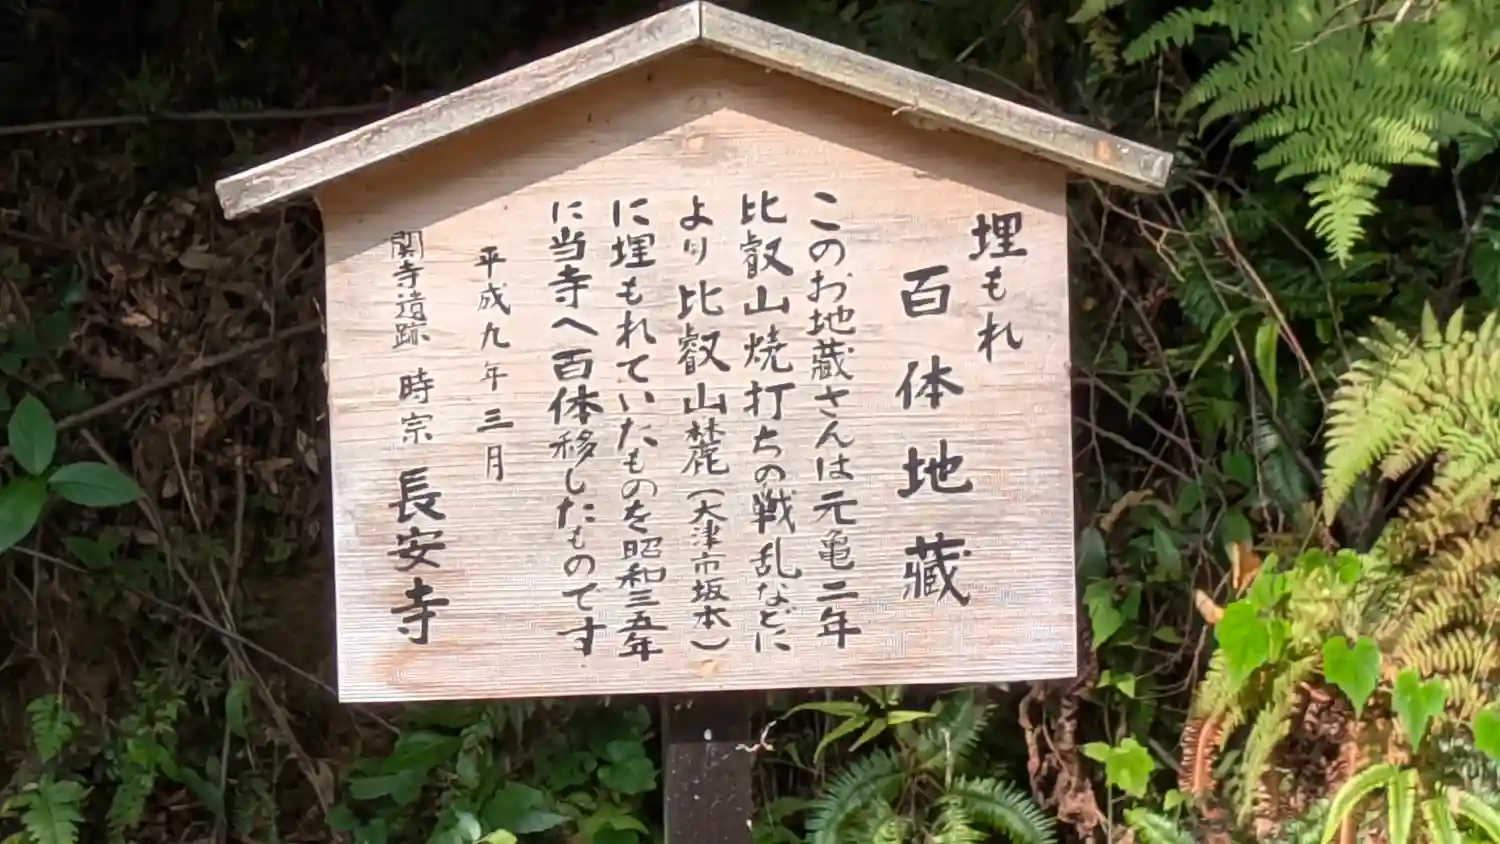 埋もれ
百体地蔵
このお地蔵さんは元亀二年
比叡山焼打ちの戦乱などに
より比叡山麓(大津市坂本)
に埋もれていたものを昭和三五年
に当寺へ百体移したものです
平成九年三月
関寺遺跡 時宗 長安寺